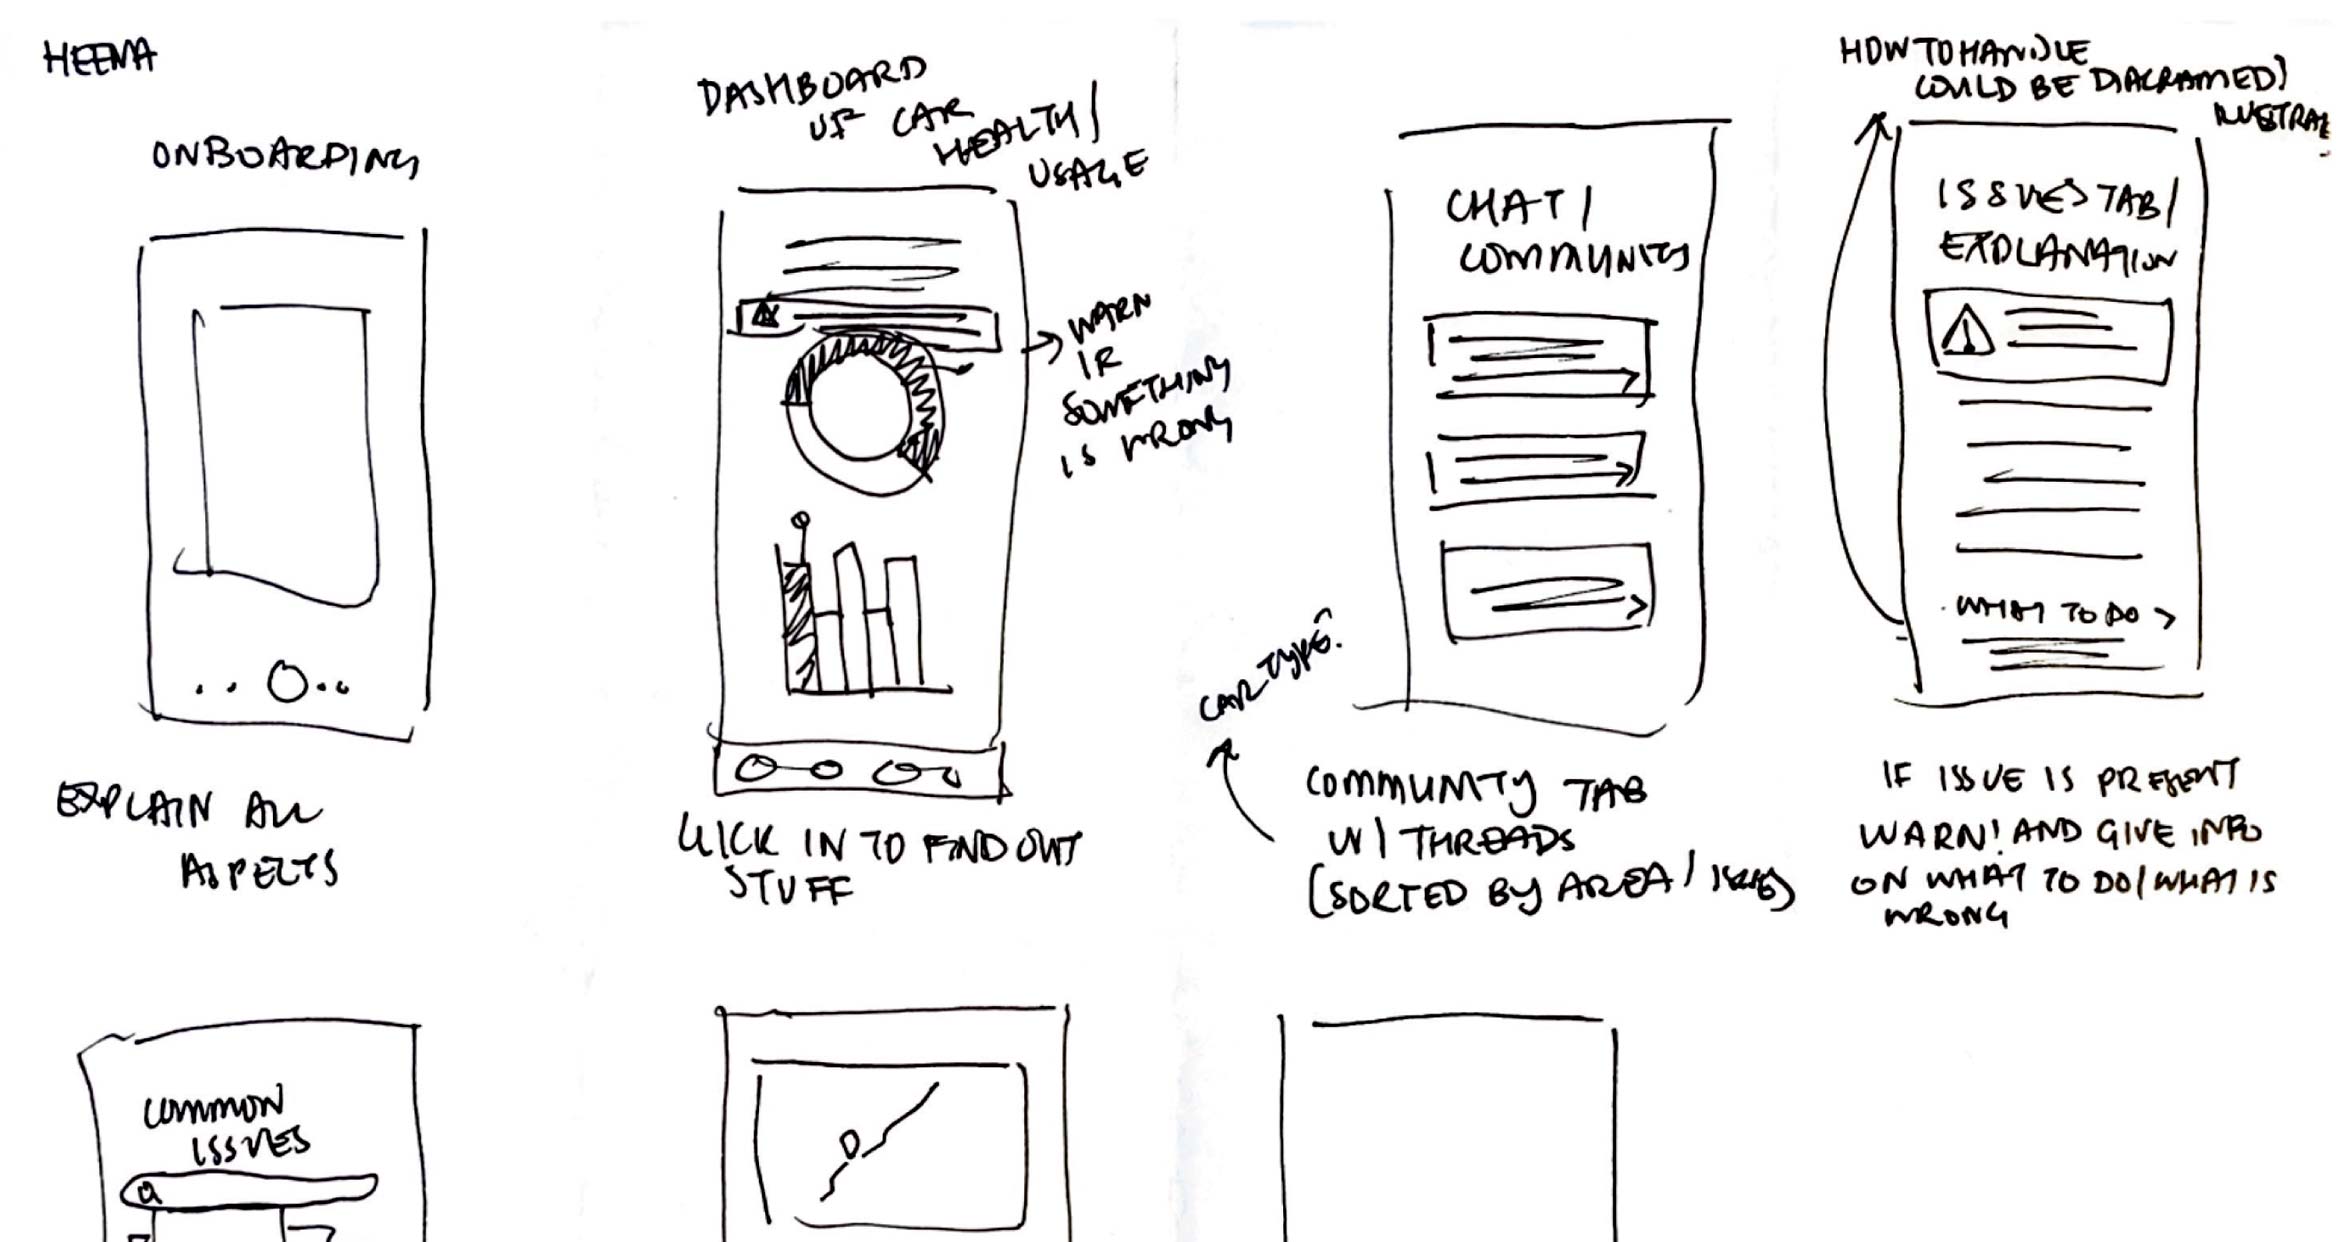 HEENA
ONBOARDING
EXPLAIN ALL
ASPECTS
DASHBOARD
OF CAR
HEALTH/
USAGE
WARN
IF
SOMETHING
IS WRONG
CLICK IN TO FIND OUT
STUFF
CHAT/
COMMUNITY
CAR TYPE.
COMMUNITY TAB
W/ THREADS
(SORTED BY AREA/ ISSUE)
HOW TO HANDLE
COULD BE DIAGRAMED/
ISSUES TAB/
EXPLANATION
WHAT TO DO >
IF ISSUE IS PRESENT
WARN! AND GIVE INFO
ON WHAT TO DO/WHAT IS
WRONG
COMMON
ISSUES